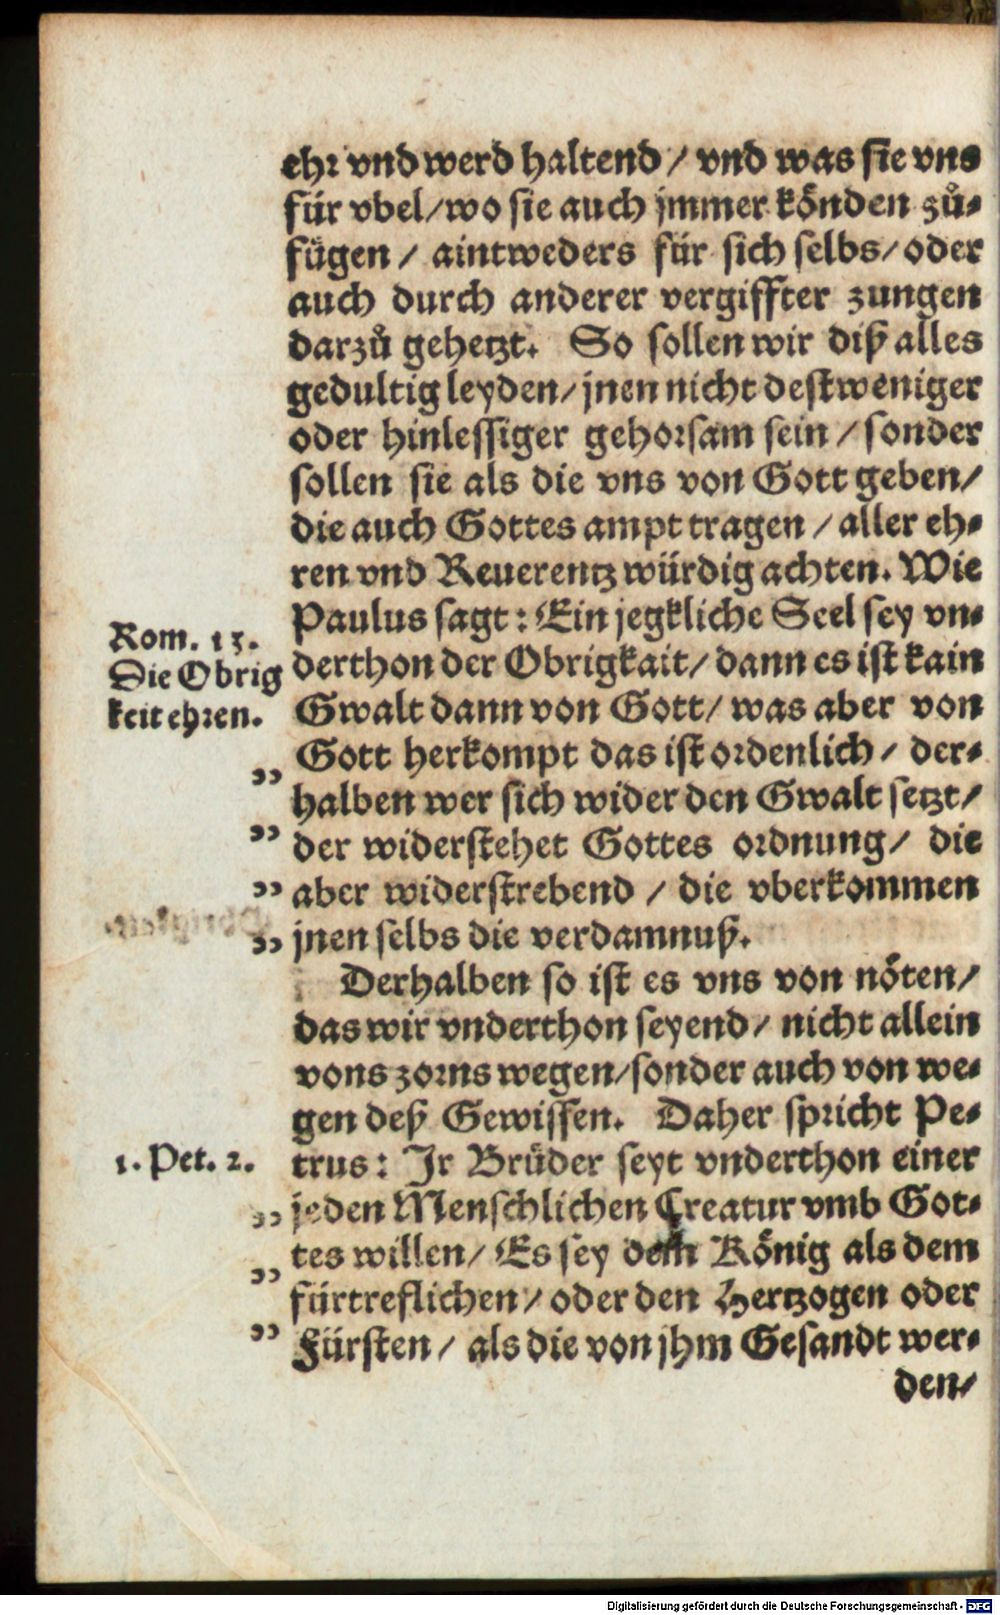 ehr vnd werd haltend / vnd was sie vns
für vbel / wo sie auch jmmer könden zů⸗
fügen / aintweders für sich selbs / oder
auch durch anderer vergiffter zungen
darzů gehetzt. So sollen wir diß alles
gedultig leyden / jnen nicht destweniger
oder hinlessiger gehorsam sein / sonder
sollen sie als die vns von Gott geben /
die auch Gottes ampt tragen / aller eh⸗
ren vnd Reuerentz würdig achten. Wie
Paulus sagt: Ein jegkliche Seel sey vn⸗
Rom. 13.
Die Obrig
keit ehren.
derthon der Obrigkait / dann es ist kain
Gwalt dann von Gott / was aber von
Gott herkompt das ist ordenlich / der⸗
„ halben wer sich wider den Gwalt setzt /
„ der widerstehet Gottes ordnung / die
„ aber widerstrebend / die vberkommen
„ jnen selbs die verdamnuß.
Derhalben so ist es vns von nöten /
das wir vnderthon seyend / nicht allein
vons zorns wegen / sonder auch von we⸗
gen deß Gewissen. Daher spricht Pe⸗
1. Pet. 2.
trus: Jr Brüder seyt vnderthon einer
„ jeden Menschlichen Creatur vmb Got⸗
„ tes willen / Es sey dem König als dem
fürtreflichen / oder den Hertzogen oder
„ Fürsten / als die von jhm Gesandt wer⸗
den /
Digitalisierung gefördert durch die Deutsche Forschungsgemeinschaft - DFG